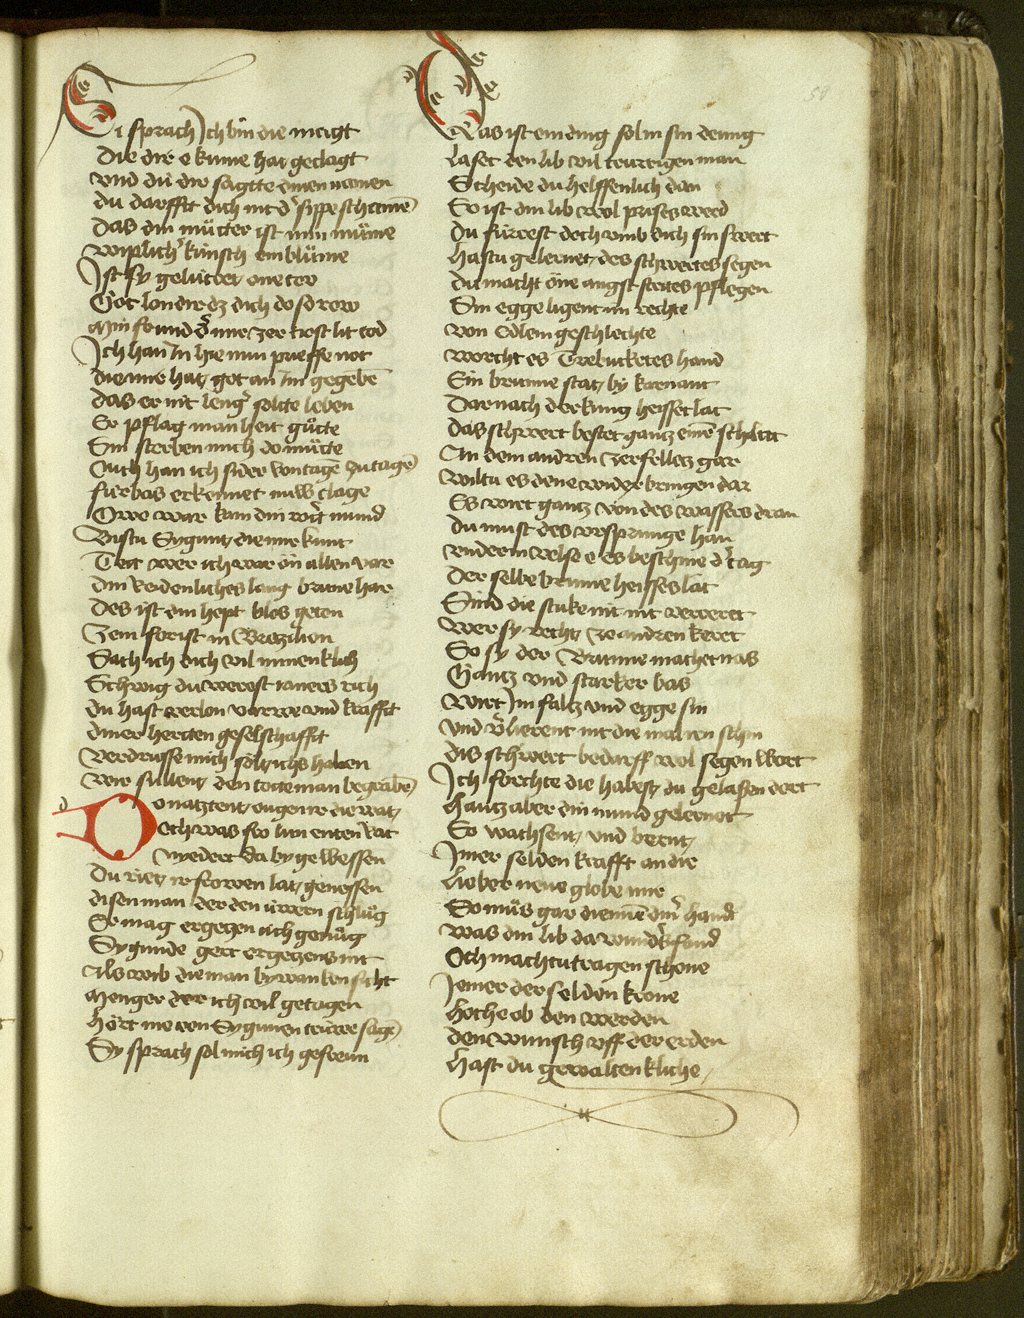 Si sprach Ich bin die magt
Die dir e kume hat geclagt
vnd dú dir sagtte dinen namen
du darfft dich nit d' sippe schamē
das din můtter ist min můme
wiplich' kúnsch ein blůme
Ist sy gelúttert one tow
Got lon dir dz dich do so row
Min frúnd d' mir zer tiost lit tod
Ich han In hie nun prieffe not
die mir hat got an Im gegebē
das er nit leng' solte leben
Er pflag manheit gůtte
Sin sterben mich do můtte
Ouch han ich sider von tagē zu tagē
fúrbas erkennet núw clage
Owe war kam din rot' mund
Bistu Sygunt die mir kunt
Tett wer ich war ön allen var
din reidenliches lang brune har
Des ist din hopt blos geton
Zem forist in Brezilion
Sach ich dich vil minenklich
Schwig du werest iamers rich
du hast verlorn varwe vnd krafft
diner herten geselschafft
verdrusse mich solt ichs haben
wir sullent den toten man begrabē
Do natztent ougen ir die wat
Och was frow lunenten rat
nyedert da by gewessen
Du riet ir frowen lat genessen
disen man der den úwern schlůg
Er mag ergezen úch genůg
Sygunde gert ergezens nit
Als wib die man by wanken siht
Menger der ich wil getagen
hört me von Sygunen trúwe sagē
Sy sprach sol mich ich gefrewn
Das ist ein ding sol in sin dennig
laset den lib vil trurrigen man
Scheide du helffenlich dan
So ist din lib wol prises werd
du fúrest doch vmb dich sin swert
hastu gelernet des schwertes segen
du macht öne angst strites pflegen
Sin egge ligent im rechte
von Edlem geschlechte
worcht es Trebuketes hand
Ein brunne stat by karnant
Dar nach der kúng heisset lac
das schwert bestet gantz einē schlag
An dem andren zerfellet gar
wiltu es dene wider bringen dar
Es wirt gantz von des wassers dran
du must des vrsprunge han
vnder im velse e es beschine d' tag
Der selbe brunne heisses lac
Sind die stuke nit nit verreret
Wer sy recht ze andren keret
So sy der Brunne machet nas
Gantz vnd starker bas
Wirt Im faltz vnd egge sin
Vnd v'lierent nit die malen schin
dis schwert bedarff wol segen wort
Ich förchte die habest du gelassen dort
hantz aber din mund gelernet
So wachsent vnd bernt
Imer selden krafft an die
lieber neue globe mir
So můs gar dienen din' hand
was din lib da wund's fand
Och macht tu tragen schone
Iemer der selden krone
hoche ob den werden
den wunsch vff der erden
hast du gewaltenkliche